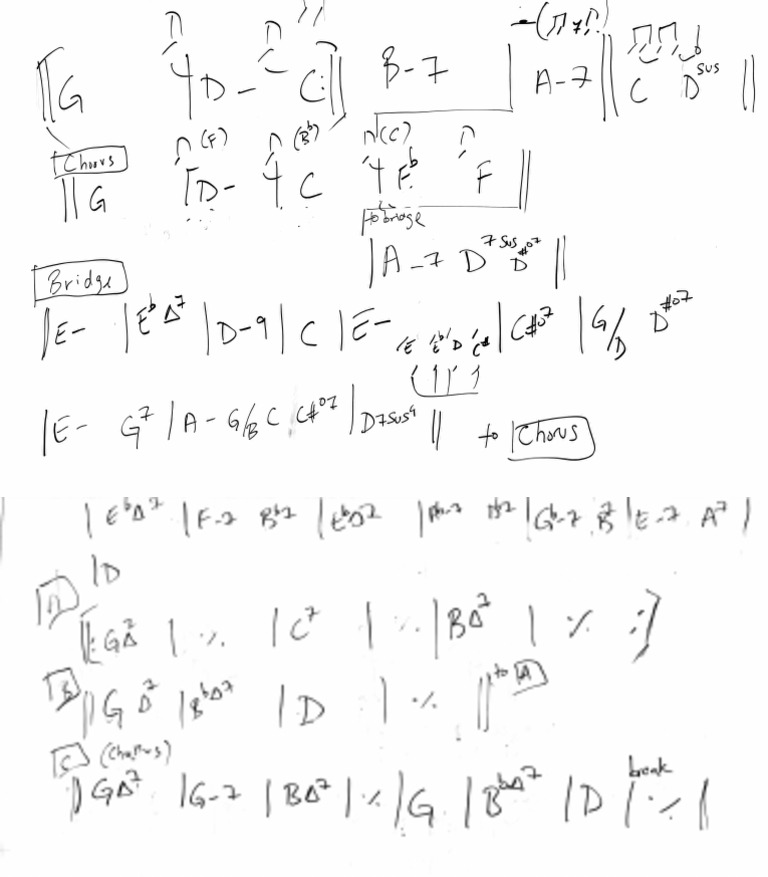 ‖G D- C :‖ B-7 | A-7 ‖ C Dsus ‖
Chorus (F) (Bb) (C)
‖ G D- C Eb F ‖
to bridge
| A-7 D7sus D#o7 ‖
Bridge
| E- | EbΔ7 | D-9 | C | E- /E /Eb /D /C# | C#o7 | G/D D#o7
| E- G7 | A- G/B C C#o7 | D7sus4 ‖ to Chorus
| EbΔ7 | F-7 Bb7 | EbΔ7 | | Gb-7 B7 | E-7 A7 |
| D
A
‖: GΔ7 | ٪ | C7 | ٪ | BΔ7 | ٪ :‖
B ‖ G D7 | BbΔ7 | D | ٪ ‖ to A
C (Chorus) break
‖ GΔ7 | G-7 | BΔ7 | ٪ | G | BbΔ7 | D | ٪ ‖